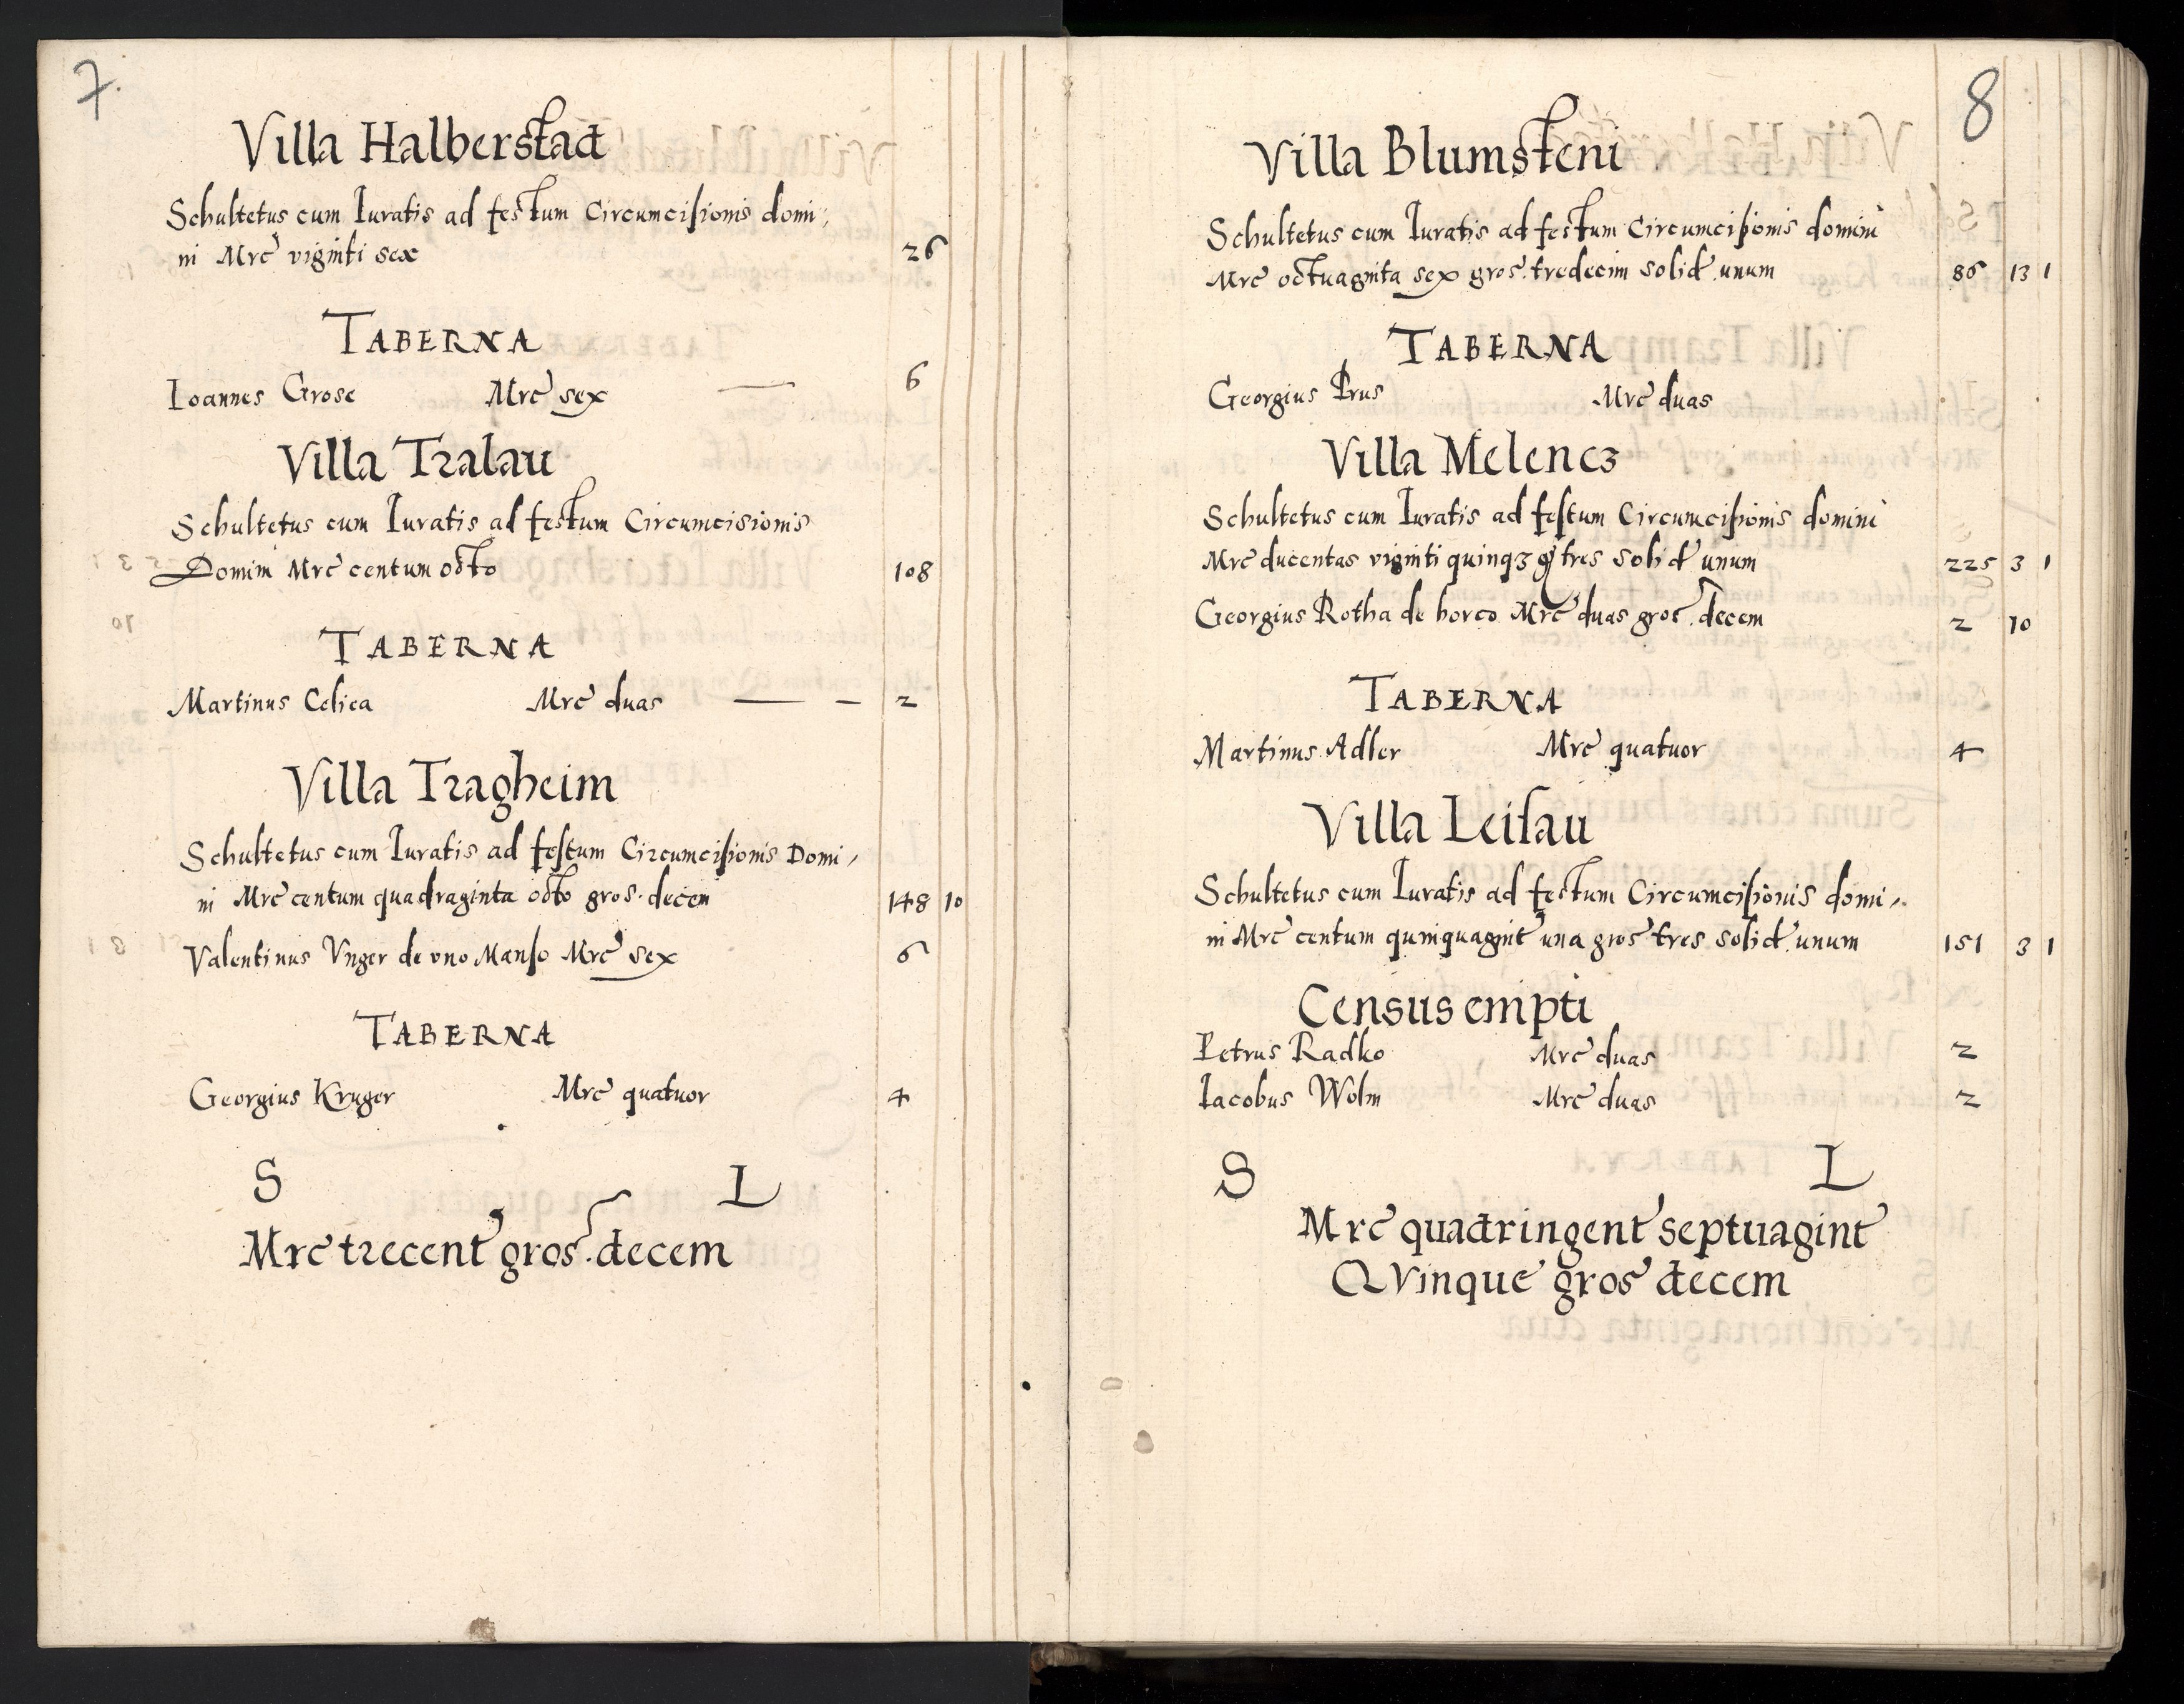 7.
Villa Halberstad
Schultetus cum Iuratis ad festum Circumcisionis domi,
ni Mrc viginti sex 26
TABERNA
Ioannes Grose Mrc sex — 6
Villa Tralau
Schultetus cum Iuratis ad festum Circumcisionis
Domini Mrc centum octo 108
TABERNA
Martinus Celica Mrc duas — – 2
Villa Tragheim
Schultetus cum Iuratis ad festum Circumcisionis Domi,
ni Mrc centum quadraginta octo gros. decem 148 10
Valentinus Vnger de vno Manso Mrc sex 6
TABERNA
Georgius Kruger Mrc quatuor 4
S L
Mrc trecent gros. decem
8
Villa Blumsteni
Schultetus cum Iuratis ad festum Circumcisionis domini
Mrc octuaginta sex gros. tredecim solid. unum 86 13 1
TABERNA
Georgius Prus Mrc duas
Villa Melencz
Schultetus cum Iuratis ad festum Circumcisionis domini
Mrc ducentas viginti quinqz g tres solid unum 225 3 1
Georgius Rotha de horeo Mrc duas gros. decem 2 10
TABERNA
Martinus Adler Mrc quatuor 4
Villa Leisau
Schultetus cum Iuratis ad festum Circumcisionis domi,
ni Mrc centum quinquagint una gros tres solid. unum 151 3 1
Census empti
Petrus Radko Mrc duas 2
Iacobus Wolm Mrc duas 2
S L
Mrc quadringent septuagint
QVinque gros decem